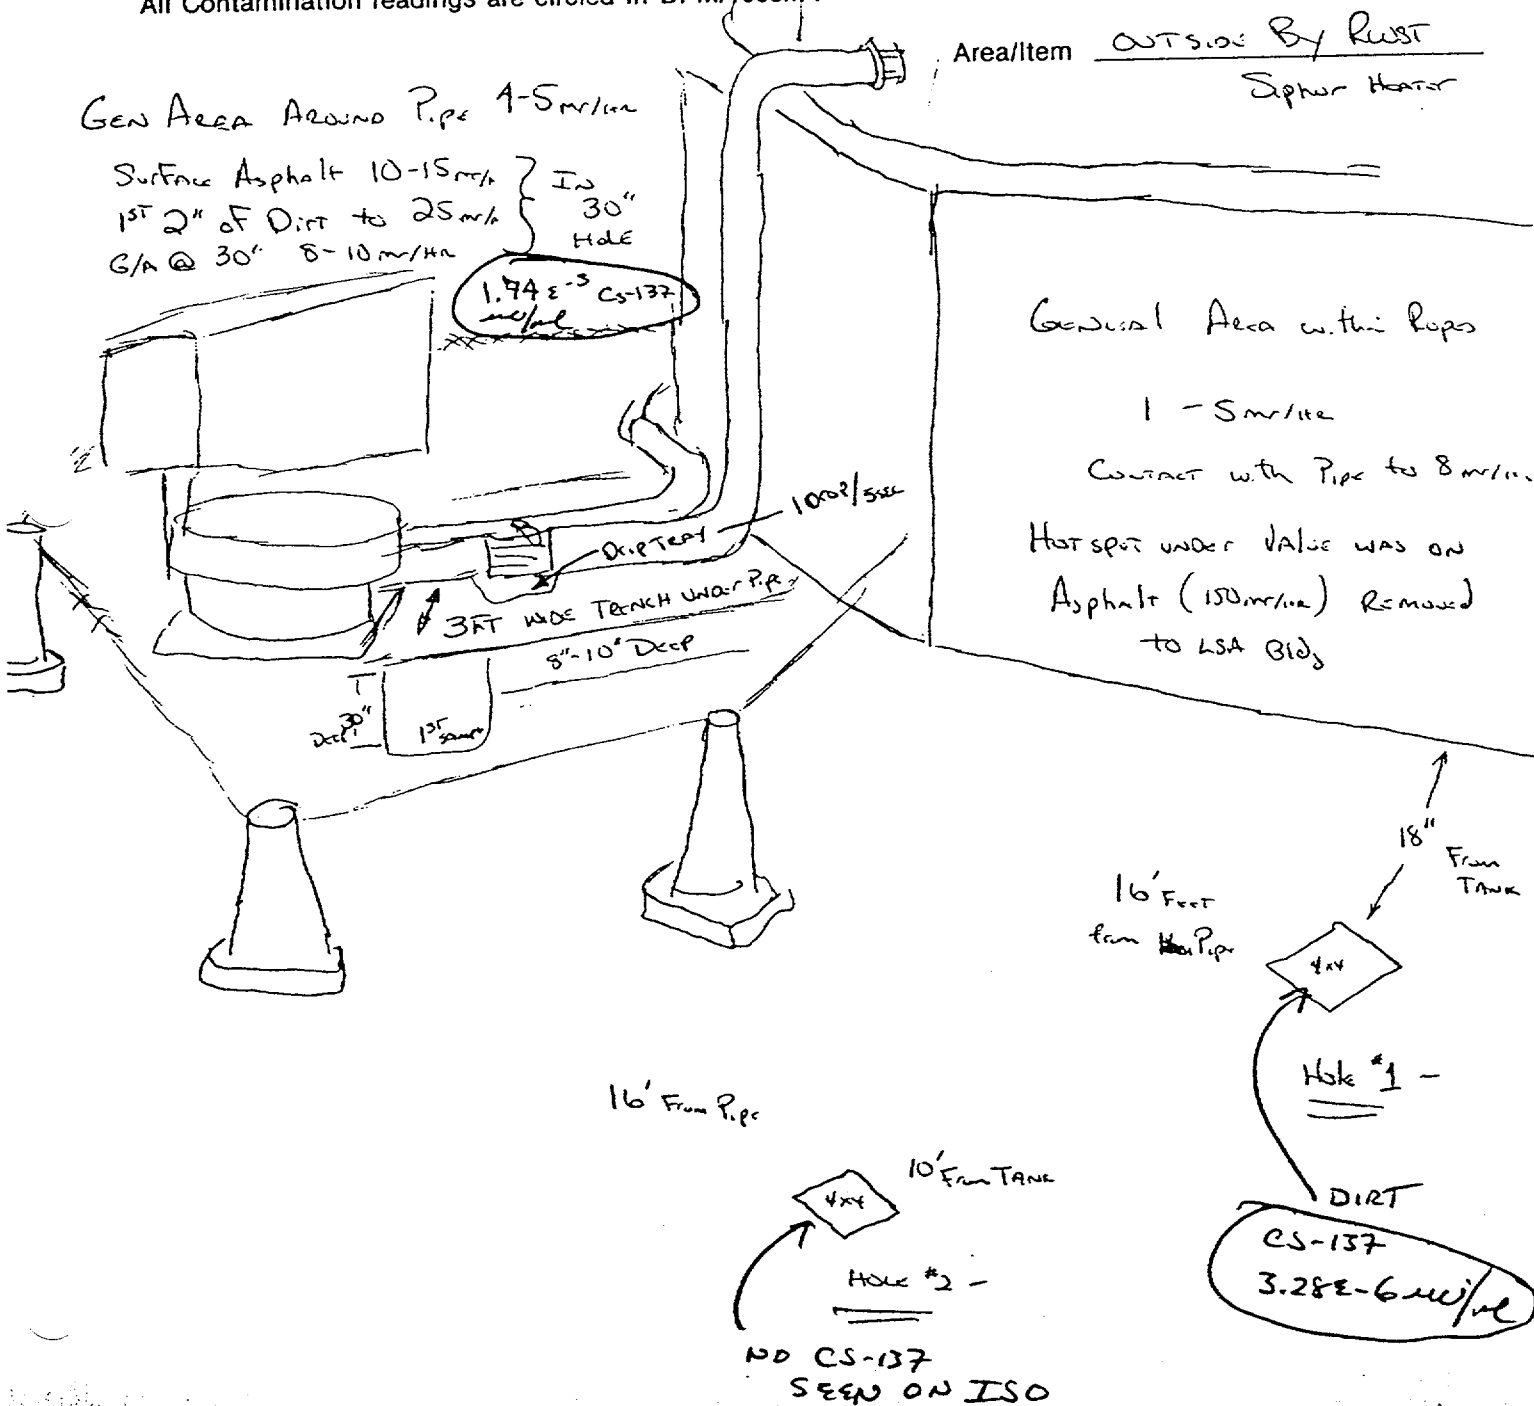 All Contamination readings are circled in DPM/100cm².
Area/Item OUTSIDE By RWST
Siphur Heater
GEN AREA AROUND Pipe 4-5 mr/HR
SurFace Asphalt 10-15 mr/h
1ST 2" of Dirt to 25 mr/h
G/A @ 30" 8-10 mr/HR
IN
30"
HOLE
1.94 E-3 Cs-137
uci/ml
General Area within Ropes
1 - 5 mr/HR
CONTACT with Pipe to 8 mr/HR
HOT SPOT UNDER VALVE WAS ON
Asphalt (150 mr/HR) REMOVED
to LSA Bldg
DripTRAY
3FT WIDE TRENCH UNDER Pipe
8"-10" DEEP
30"
DEEP
1ST SAMPLE
18"
From
TANK
16' FEET
from Pipe
4x4
Hole #1 -
DIRT
CS-137
3.28E-6 uci/ml
16' From Pipe
10' From TANK
4x4
HOLE #2 -
NO CS-137
SEEN ON ISO